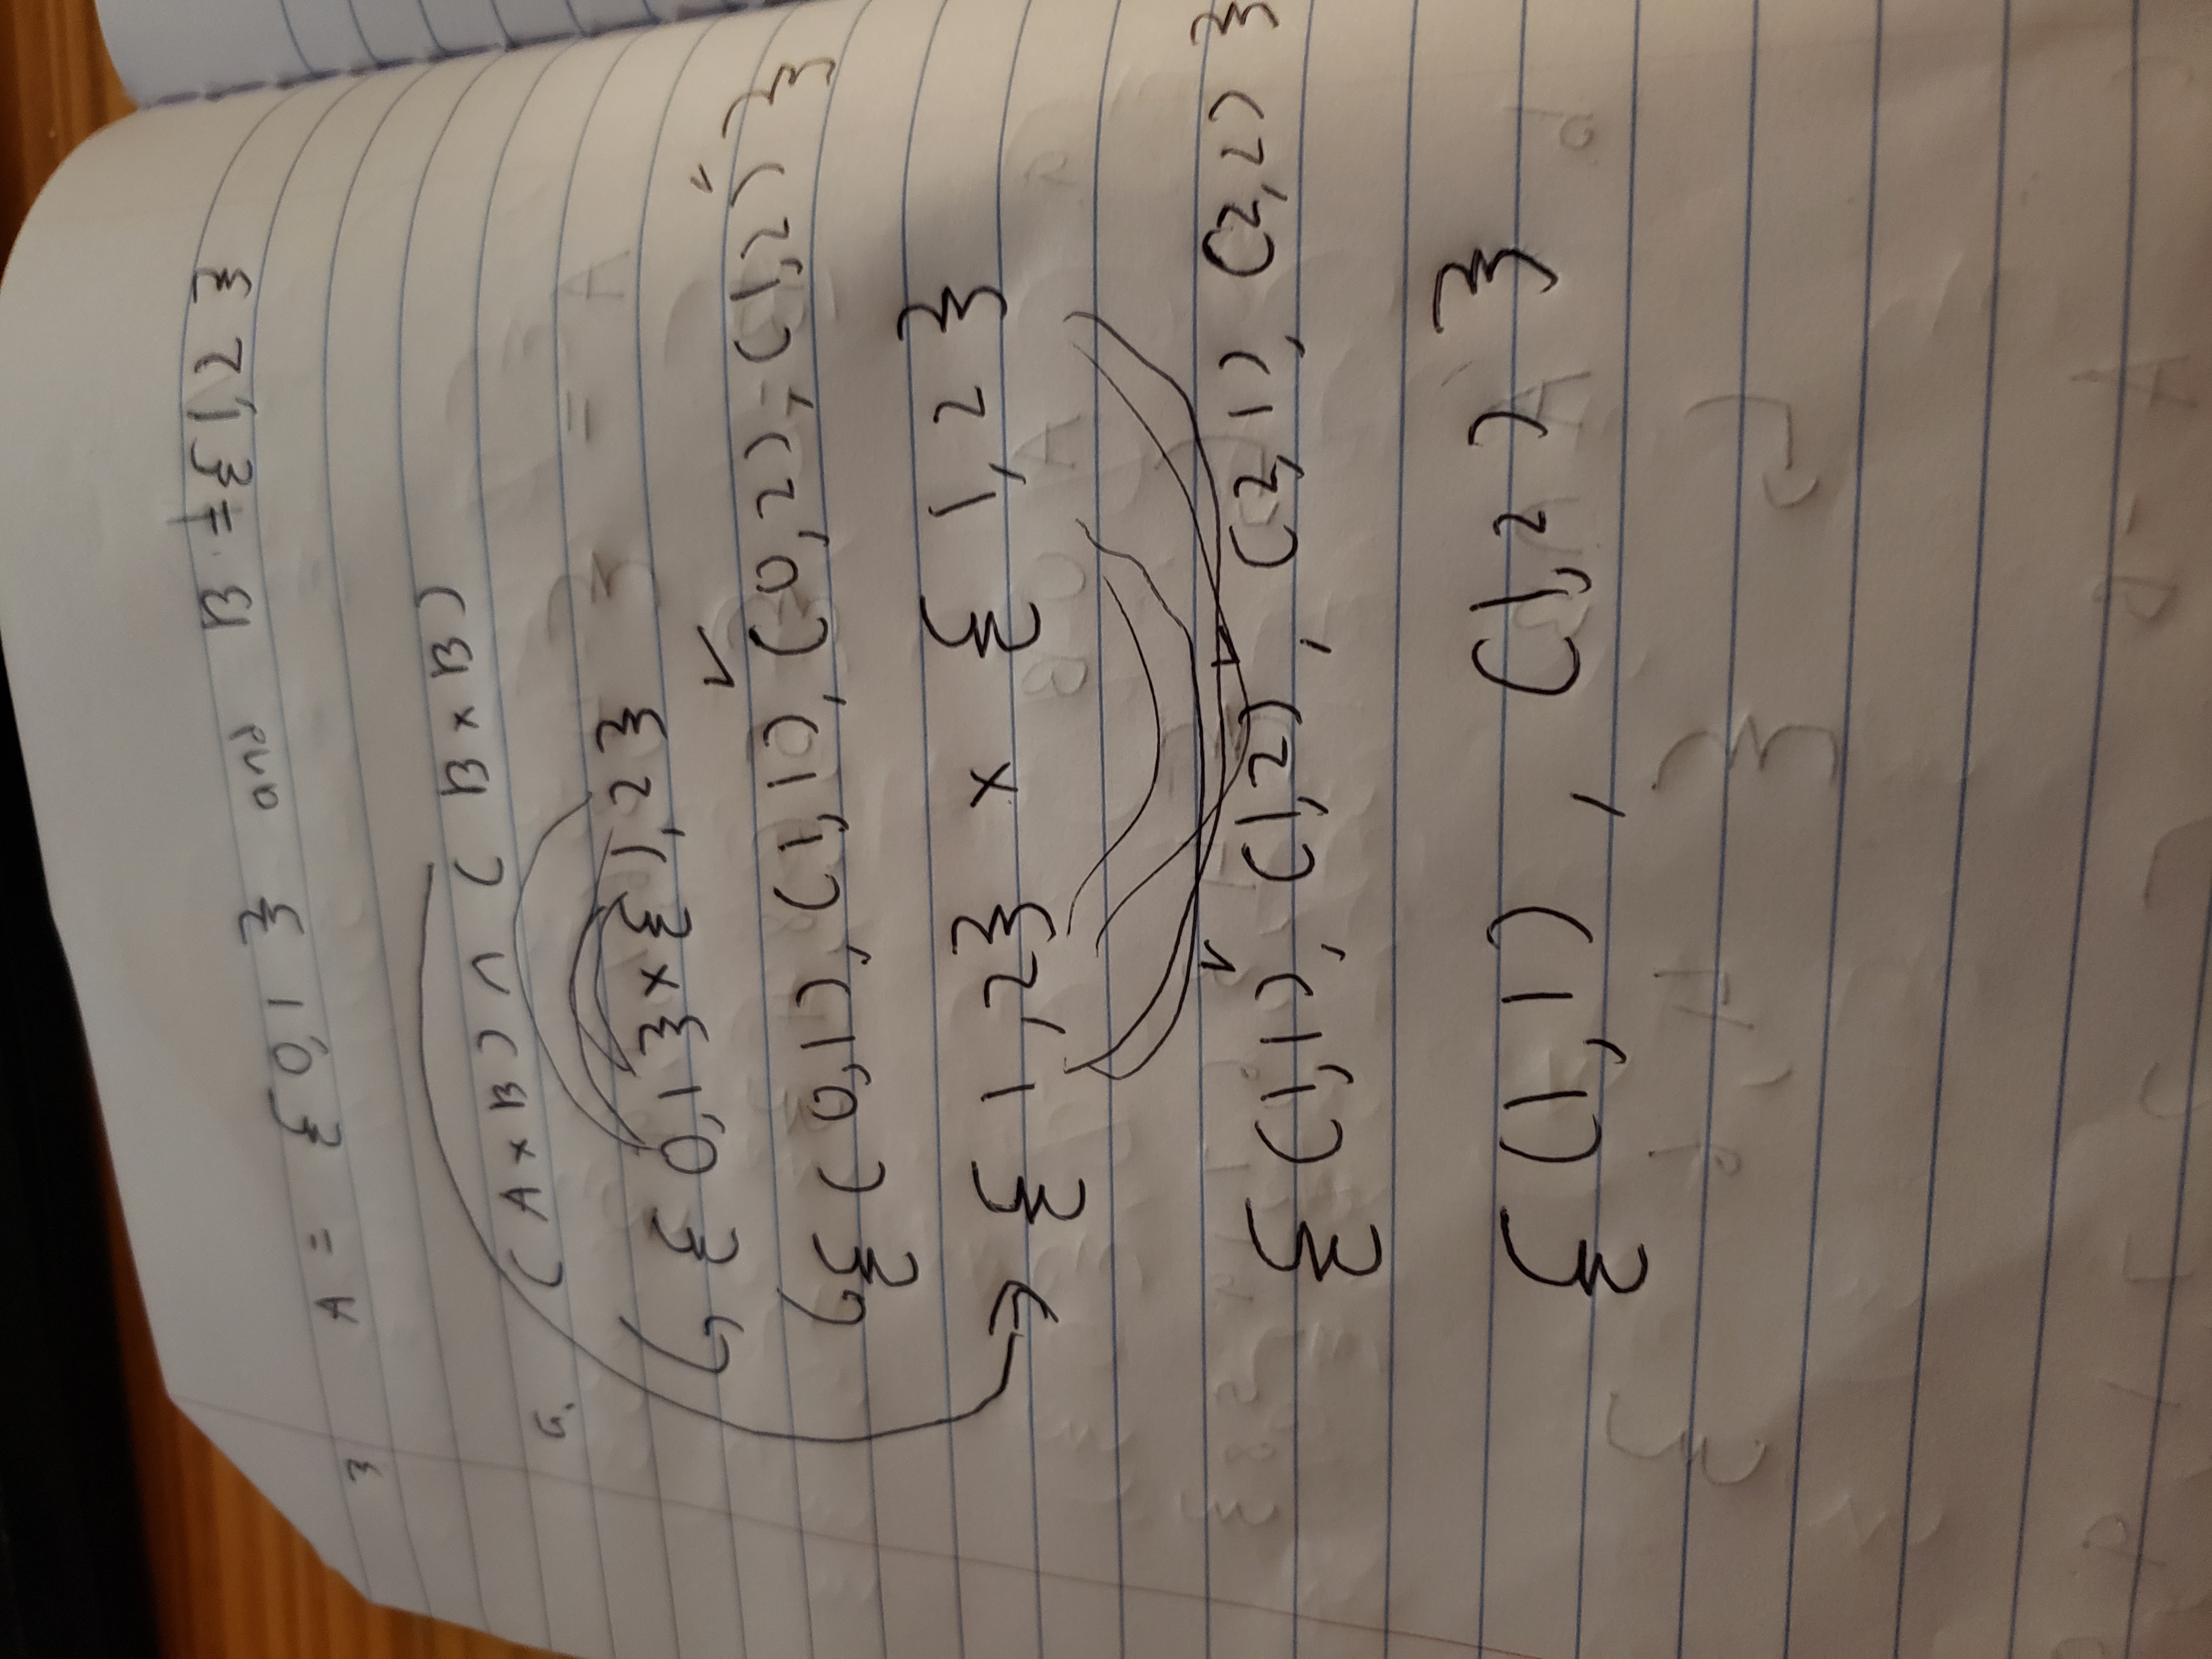 3 A = { 0, 1 } and B = { 1, 2 }
a. ( A × B ) ∩ ( B × B )
{ 0, 1 } × { 1, 2 }
{ ( 0, 1 ), ( 1, 1 ), ( 0, 2 ), ( 1, 2 ) }
{ 1, 2 } × { 1, 2 }
{ ( 1, 1 ), ( 1, 2 ), ( 2, 1 ), ( 2, 2 ) }
{ ( 1, 1 ) , ( 1, 2 ) }